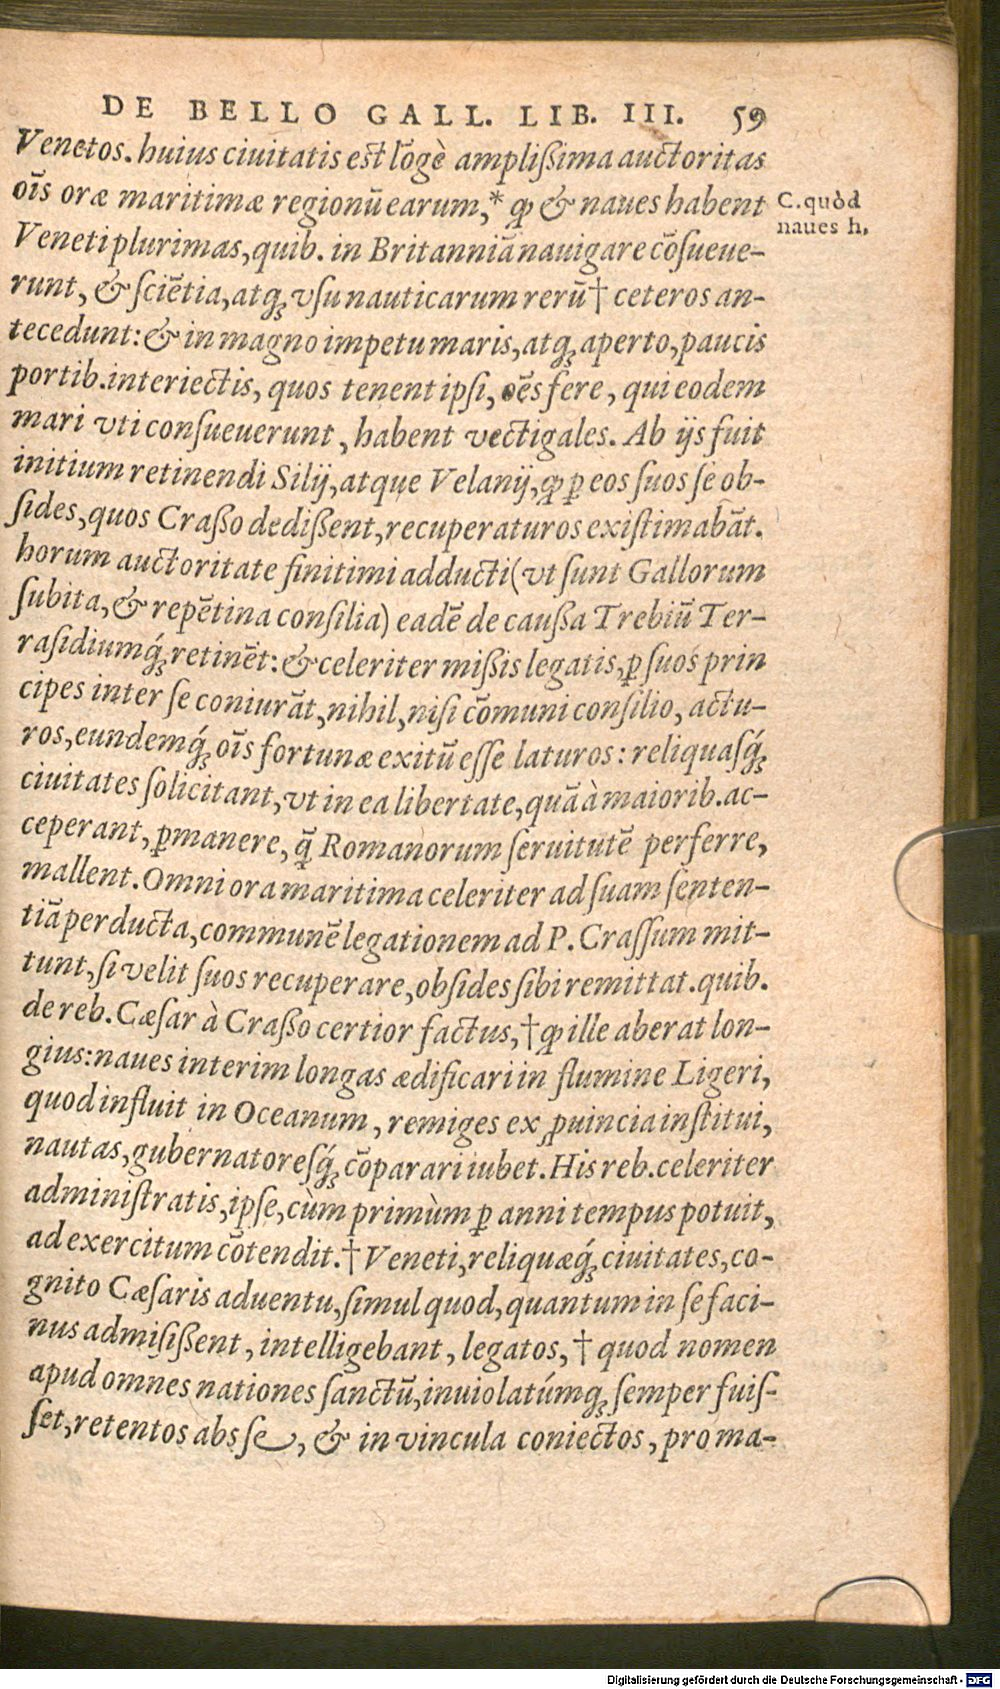 DE BELLO GALL. LIB. III. 59
Venetos. huius ciuitatis est lõgè amplißima auctoritas
oĩs oræ maritimæ regionũ earum,* ꝙ & naues habent
C. quòd
naues h.
Veneti plurimas, quib. in Britanniã nauigare cõsueue-
runt, & sciẽtia, atqꝫ vsu nauticarum rerũ † ceteros an-
tecedunt: & in magno impetu maris, atqꝫ aperto, paucis
portib. interiectis, quos tenent ipsi, oẽs fere, qui eodem
mari vti consueuerunt, habent vectigales. Ab ijs fuit
initium retinendi Silij, atque Velanij, ꝙ ꝑ eos suos se ob-
sides, quos Craßo dedißent, recuperaturos existimabãt.
horum auctoritate finitimi adducti (vt sunt Gallorum
subita, & repẽtina consilia) eadẽ de caußa Trebiũ Ter-
rasidiumq́ꝫ retinẽt: & celeriter mißis legatis, ꝑ suos prin
cipes inter se coniurãt, nihil, nisi cõmuni consilio, actu-
ros, eundemq́ꝫ oĩs fortunæ exitũ esse laturos: reliquasq́ꝫ
ciuitates solicitant, vt in ea libertate, quã à maiorib. ac-
ceperant, ꝑmanere, q̃ꝫ Romanorum seruitutẽ perferre,
mallent. Omni ora maritima celeriter ad suam senten-
tiã perducta, communẽ legationem ad P. Crassum mit-
tunt, si velit suos recuperare, obsides sibi remittat. quib.
de reb. Cæsar à Craßo certior factus, † ꝙ ille aberat lon-
gius: naues interim longas ædificari in flumine Ligeri,
quod influit in Oceanum, remiges ex ꝓuincia institui,
nautas, gubernatoresq́ꝫ cõparari iubet. His reb. celeriter
administratis, ipse, cùm primùm ꝑ anni tempus potuit,
ad exercitum cõtendit. † Veneti, reliquæq́ꝫ ciuitates, co-
gnito Cæsaris aduentu, simul quod, quantum in se faci-
nus admisißent, intelligebant, legatos, † quod nomen
apud omnes nationes sanctũ, inuiolatúmqꝫ semper fuis-
set, retentos abs se, & in vincula coniectos, pro ma-
Digitalisierung gefördert durch die Deutsche Forschungsgemeinschaft - DFG